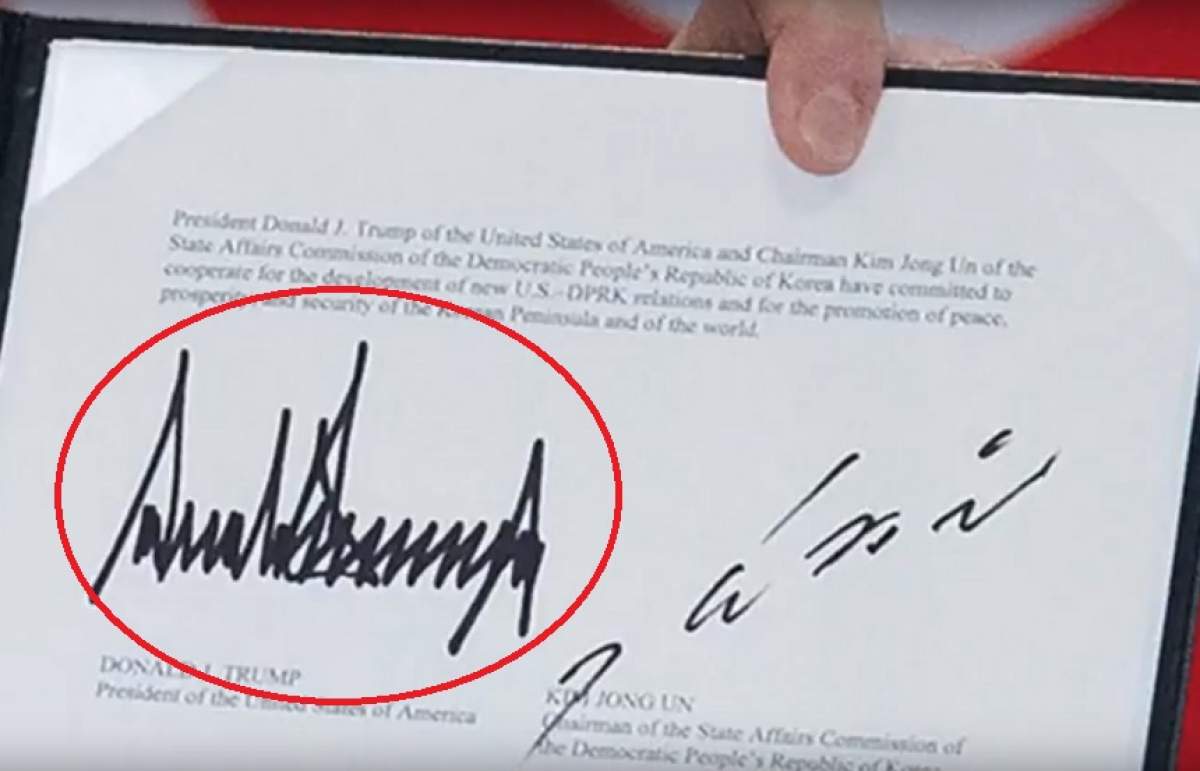 President Donald J. Trump of the United States of America and Chairman Kim Jong Un of the
State Affairs Commission of the Democratic People's Republic of Korea have committed to
cooperate for the development of new U.S.-DPRK relations and for the promotion of peace,
prosperity, and security of the Korean Peninsula and of the world.
DONALD J. TRUMP
President of the United States of America
KIM JONG UN
Chairman of the State Affairs Commission of
the Democratic People's Republic of Korea